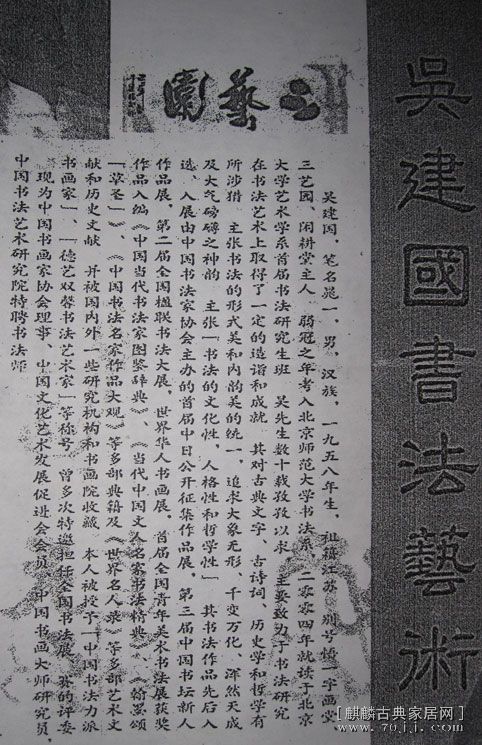 吴建國書法藝術
三藝園
吴建国，笔名晁一，男，汉族，一九五八年生，祖籍江苏，别号慎一字画堂
三艺园、闲耕堂主人，弱冠之年考入北京师范大学书法系，二零零四年就读于北京
大学艺术学系首届书法研究生班，吴先生数十载孜孜以求，主要致力于书法研究
在书法艺术上取得了一定的造诣和成就，其对古典文字、古诗词、历史学和哲学有
所涉猎，主张书法的形式美和内韵美的统一，追求大象无形，千变万化、浑然天成
及大气磅礴之神韵，主张「书法的文化性，人格性和哲学性」，其书法作品先后入
选、入展由中国书法家协会主办的首届中日公开征集作品展，第三届中国书坛新人
作品展，第二届全国楹联书法大展，世界华人书画展，首届全国青年美术书法展获奖
作品入编《中国当代书法家图鉴辞典》、《当代中国文人名家书法精典》、《翰墨颂
「草圣」》、《中国书法名家作品大观》等多部典籍及《世界名人录》等多部艺术文
献和历史文献，并被国内外一些研究机构和书画院收藏，本人被授予「中国书法力派
书画家」、「德艺双馨书法艺术家」等称号，曾多次特邀担任全国书法展、赛的评委
现为中国书画家协会理事、中国文化艺术发展促进会会员、中国书画大师研究员、
中国书法艺术研究院特聘书法师
[麒麟古典家居网]
www.76jj.com